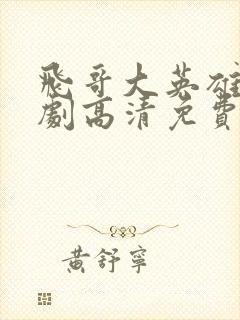 飛哥大英雄
劇高清免費
黃舒寧